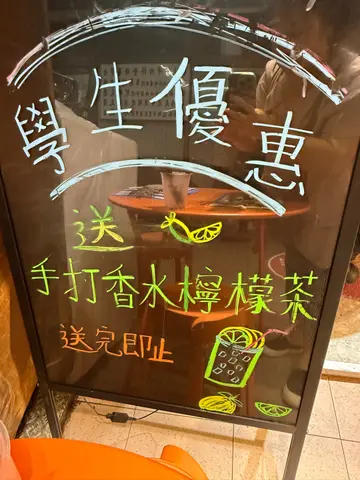 學生優惠
送
手打香水檸檬茶
送完即止